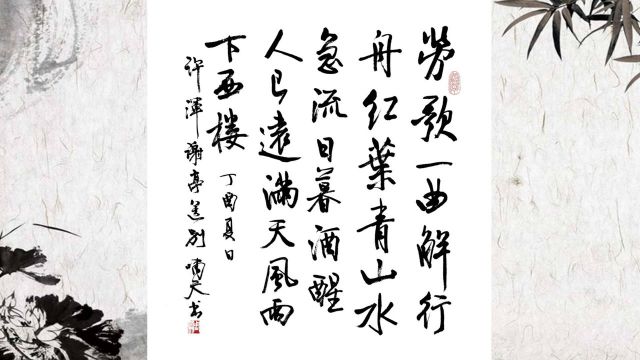 劳歌一曲解行
舟红葉青山水
急流日暮酒醒
人已遠满天風雨
下西楼 丁酉夏日
许渾謝亭送别 啸天书